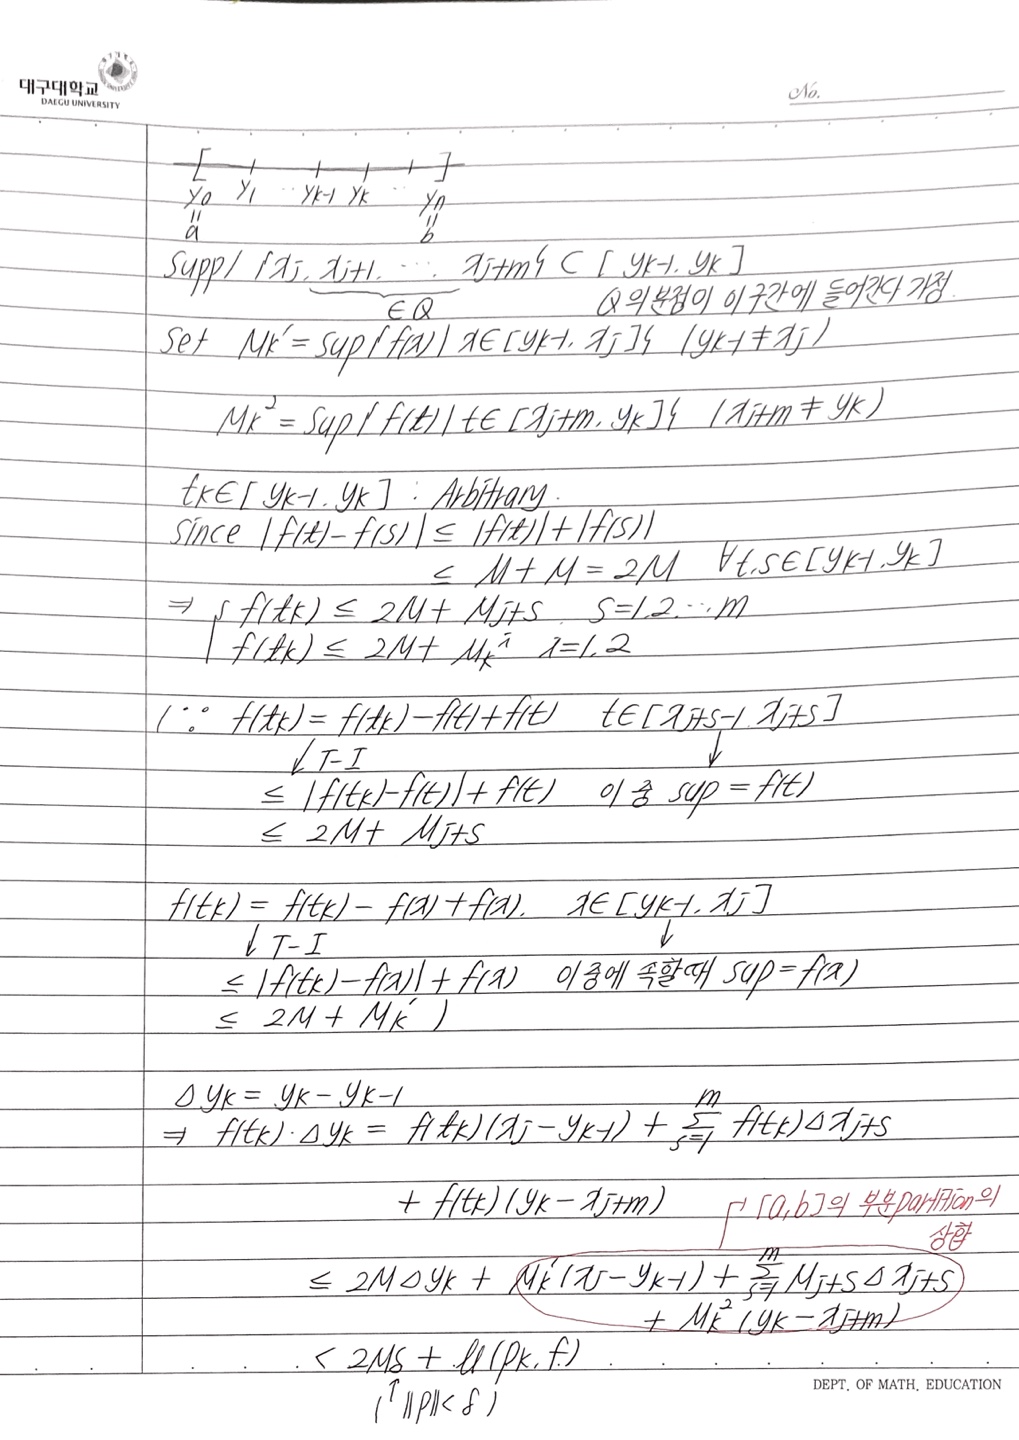 대구대학교
DAEGU UNIVERSITY
No.
[ ]
y0 y1 ·· yk-1 yk ·· yn
a b
Supp) {xj, xj+1, ···, xj+m} ⊂ [yk-1, yk]
∈Q Q의 분점이 이 구간에 들어간다 가정.
Set Mk' = sup{f(x) | x∈[yk-1, xj]} (yk-1 ≠ xj)
Mk² = sup{f(t) | t∈[xj+m, yk]} (xj+m ≠ yk)
tk∈[yk-1, yk] : Arbitrary.
Since |f(t)-f(s)| ≤ |f(t)|+|f(s)|
≤ M+M = 2M ∀t,s∈[yk-1, yk]
⇒ { f(tk) ≤ 2M + Mj+s, s=1,2,···,m
f(tk) ≤ 2M + Mk^i i=1,2
(∵ f(tk) = f(tk)-f(t)+f(t) t∈[xj+s-1, xj+s]
↓ T-I ↓
≤ |f(tk)-f(t)|+f(t) 이 중 sup = f(t)
≤ 2M + Mj+s
f(tk) = f(tk)-f(x)+f(x), x∈[yk-1, xj]
↓ T-I ↓
≤ |f(tk)-f(x)|+f(x) 이 중에 속할때 sup = f(x)
≤ 2M + Mk' )
Δyk = yk - yk-1
⇒ f(tk)·Δyk = f(tk)(xj-yk-1) + Σ_{s=1}^{m} f(tk)Δxj+s
+ f(tk)(yk-xj+m)
[a,b]의 부분partition의
상합
≤ 2MΔyk + Mk'(xj-yk-1) + Σ_{s=1}^{m} Mj+sΔxj+s
+ Mk²(yk-xj+m)
< 2Mδ + U(Pk, f)
(↑ ||P||<δ)
DEPT. OF MATH. EDUCATION